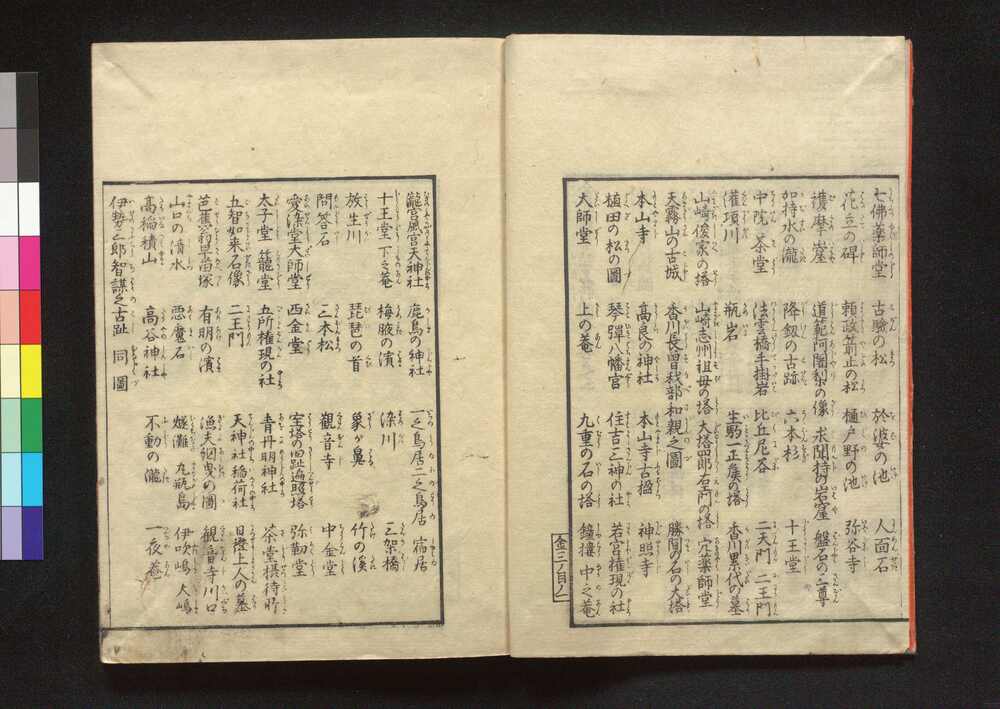 七佛薬師堂 古験の松 於婆の池 人面石
花立の碑 頼政前止の松 樋戸野の池 弥谷寺
護摩ノ崖 道範阿闍梨の像 求聞持の岩窟 盤石の三尊
加持水の瀧 降釼の古跡 六本杉 十王堂
中院ノ茶堂 法雲橋手掛岩 比丘尼谷 二天門 二王門
潅頂川 瓶岩 生駒一正矦の塔 香川累代の墓
山崎俊家の塔 山崎志州祖母の塔 大塔四郎右ヱ門の塔 穴薬師堂
天霧山の古城 香川長曽我部和親之圖 勝間の石の大塔
本山寺 高良の神社 本山寺古楹 神照寺
植田の松の圖 琴彈八幡宮 住吉三神の社 若宮権現の社
大師堂 上の菴 九重の石の塔 鐘楼 中之菴
金三ノ目ノ一
龍宮風宮天神社 鹿島の紳社 一之鳥居二之鳥居 宿居
十王堂 下之菴 梅腋の濱 染川 三架橋
放生川 琵琶の首 象が鼻 竹の溪
問答石 二本松 觀音寺 中金堂
愛染堂大師堂 西金堂 宝塔の旧趾遍照塔 弥勒堂
太子堂 籠堂 五所権現の社 青丹明神社 茶堂摂待所
五智如来石像 二王門 天神社 稲荷社 日證上人の墓
芭蕉翁早苗塚 有明の濱 漁夫網曳の圖 觀音寺川口
山口の清水 悪魔石 嫐灘 丸瓶島 伊吹嶋 大嶋
高稲積山 高谷神社 不動の瀧 一夜菴
伊勢二郎智謀之古趾 同圖